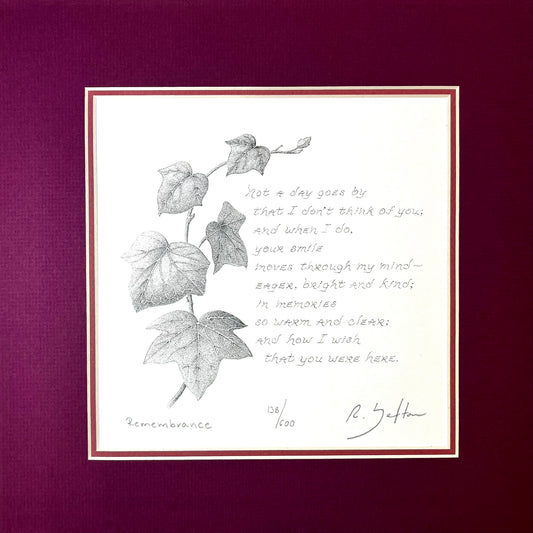 Not a day goes by
that I don't think of you;
and when I do,
your smile
moves through my mind—
eager, bright and kind;
in memories
so warm and clear;
and how I wish
that you were here.
Remembrance
138/500
R. Sefton